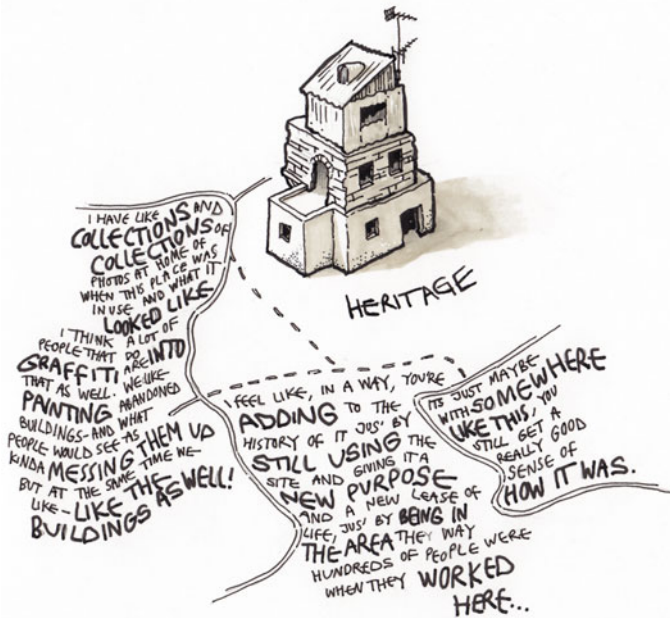 HERITAGE
I HAVE LIKE
COLLECTIONS AND
COLLECTIONS OF
PHOTOS AT HOME OF
WHEN THIS PLACE WAS
IN USE AND WHAT IT
LOOKED LIKE
I THINK A LOT OF
PEOPLE THAT DO
GRAFFITI ARE INTO
THAT AS WELL. WE LIKE
PAINTING ABANDONED
BUILDINGS - AND WHAT
PEOPLE WOULD SEE AS
KINDA MESSING THEM UP
BUT AT THE SAME TIME WE
LIKE - LIKE THE
BUILDINGS AS WELL!
I FEEL LIKE, IN A WAY, YOU'RE
ADDING TO THE
HISTORY OF IT JUS' BY
STILL USING THE
SITE AND GIVING IT A
NEW PURPOSE
AND A NEW LEASE OF
LIFE, JUS' BY BEING IN
THE AREA THEY WAY
HUNDREDS OF PEOPLE WERE
WHEN THEY WORKED
HERE...
ITS JUST MAYBE
WITH SOMEWHERE
LIKE THIS, YOU
STILL GET A
REALLY GOOD
SENSE OF
HOW IT WAS.